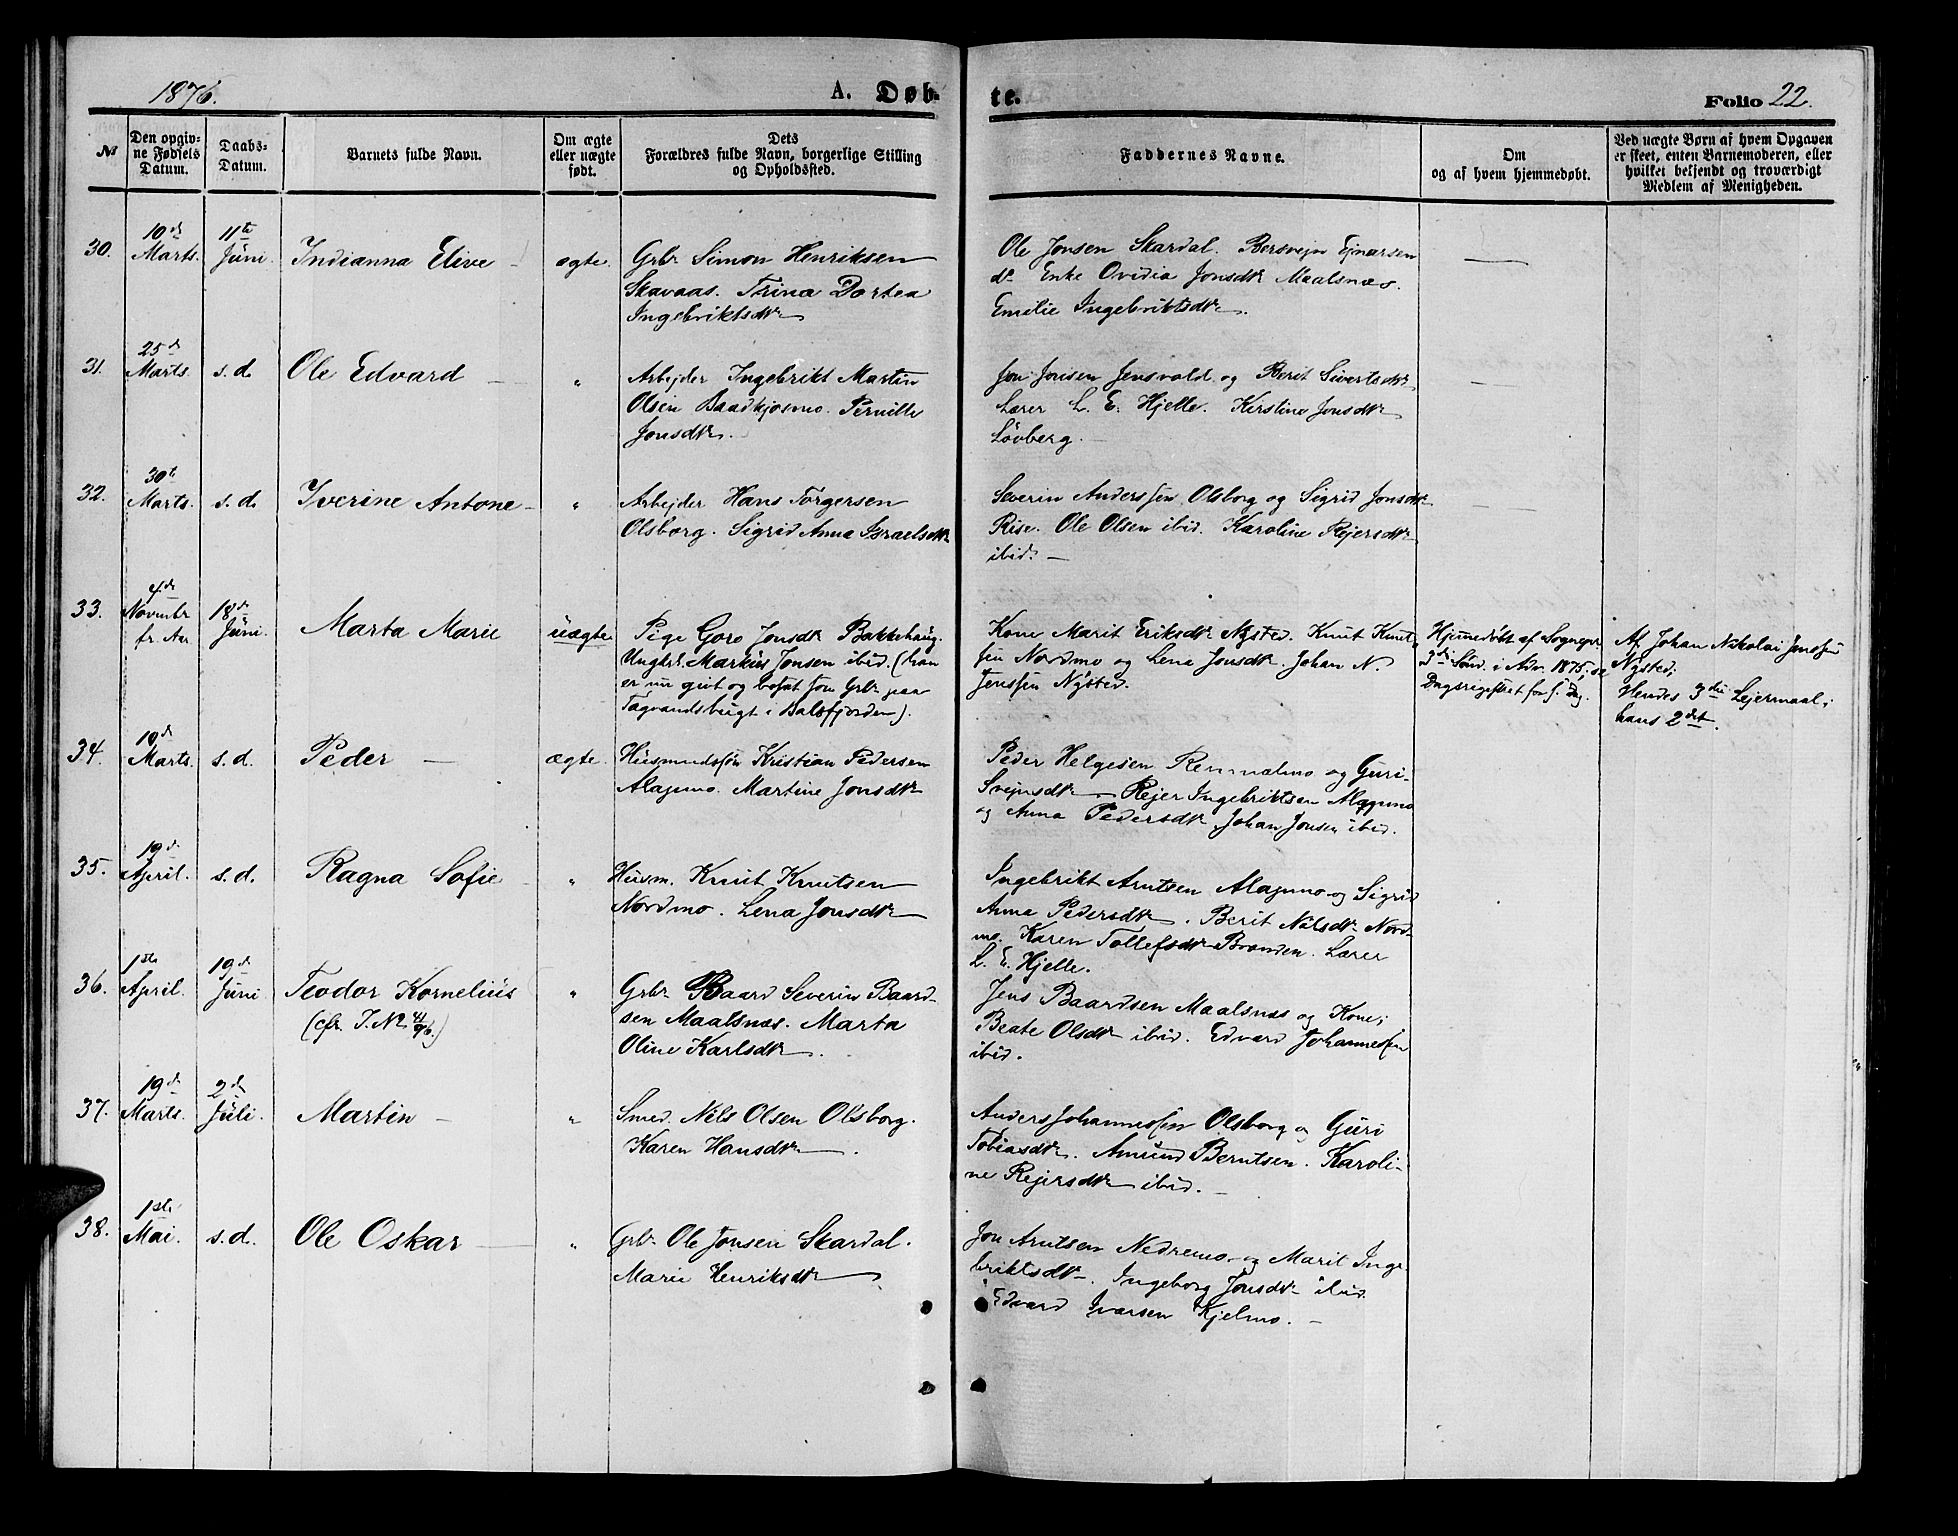 1876. A. Døb- te. Folio 22.
№
Den opgiv-
ne Fødsels
Datum.
Daabs-
Datum.
Barnets fulde Navn.
Om ægte
eller uægte
født.
Dets
Forældres fulde Navn, borgerlige Stilling
og Opholdssted.
Faddernes Navne.
Om
og af hvem hjemmedøbt.
Ved uægte Børn af hvem Opgaven
er skeet, enten Barnemoderen, eller
hvilket bekjendt og troværdigt
Medlem af Menigheden.
30.
10de
Marts.
11te
Juni.
Indianna Elive
ægte.
Grbr Simon Henriksen
Skavaas. Trina Dortea
Ingebriktsdtr
Ole Jonsen Skardal. Bersvejn Ejnarsen
do Enke Ovidia Jonsdtr Maalsnæs.
Emilie Ingebriktsdtr.
31.
25de
Marts.
s. d.
Ole Edvard
"
Arbejder Ingebrikt Martin
Olsen Baadkjosmo. Pernille
Jonsdtr.
Jon Jonsen Jensvold og Berit Sivertsdtr
Lærer L. E. Hjelle. Kirstine Jonsdtr
Løvberg.
32.
30te
Marts.
s. d.
Iverine Antone
"
Arbejder Hans Torgersen
Olsborg. Sigrid Anna Israelsdtr
Severin Anderssen Olsborg og Sigrid Jonsdtr
Rise. Ole Olsen ibid. Karoline Rejersdtr
ibid.
33.
4de
Novembr
fr. Aar
18de
Juni.
Marta Marie
uægte
Pige Goro Jonsdtr Bakkehaug.
Ungkr. Markus Jonsen ibid. (han
er nu givt og bosat som Grbr paa
Tagvandsbugt i Balsfjorden).
Kone Marit Eriksdtr Nysted. Knut Knut-
sen Nordmo og Lena Jonsdtr. Johan N.
Jenssen Nysted.
Hjemmedøbt af Sognepr.
3die Sønd. i Adv. 1875; se
Dagsregistret for s. Dg.
Af Johan Nikolai Jenssen
Nysted;
Hendes 3die Lejermaal;
hans 2det.
34.
10de
Marts.
s. d.
Peder
ægte.
Husmandssøn Kristian Pedersen
Alapmo. Martine Jonsdtr
Peder Helgesen Rennælmo og Guri
Svejnsdtr. Rejer Ingebriktsen Alapmo
og Anna Pedersdtr. Johan Jonsen ibid.
35.
19de
April.
s. d.
Ragna Sofie
"
Husm. Knut Knutsen
Nordmo. Lena Jonsdtr
Ingebrikt Arntsen Alapmo og Sigrid
Anna Pedersdtr. Berit Nilsdtr Nord-
mo. Karen Tollefsdtr Branden. Lærer
L. E. Hjelle.
36.
1ste
April.
19de
Juni
Teodor Kornelius
(cfr. J. № 41/76.)
"
Grbr Baard Severin Baard-
sen Maalsnæs. Marta
Oline Karlsdtr.
Jens Baardsen Maalsnæs og Kone;
Beate Olsdtr ibid. Edvard Johannessen
ibid.
37.
19de
Marts.
2den
Juli.
Martin
"
Smed. Nils Olsen Olsborg.
Karen Hansdtr.
Anders Johannessen Olsborg og Guri
Tobiasdtr. Amund Berntsen. Karoli-
ne Rejersdtr ibid.
38.
1ste
Mai.
s. d.
Ole Oskar
"
Grbr Ole Jonsen Skardal.
Marie Henriksdtr
Jon Arntsen Nedremo og Marit Inge-
briktsdtr. Ingeborg Jonsdtr ibid.
Edvard Ivarsen Kjelmo.